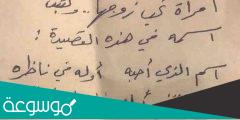 امرأة تحب زوجها .. ولقبت
اسمه في هذه القصيدة :
اسم الذي أحبه أوله في ناظره
موسوعة